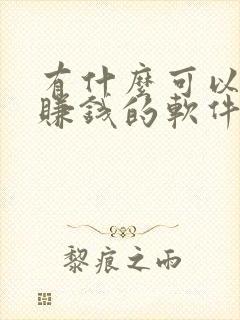 有什麼可以
賺錢的軟件
黎痕之雨